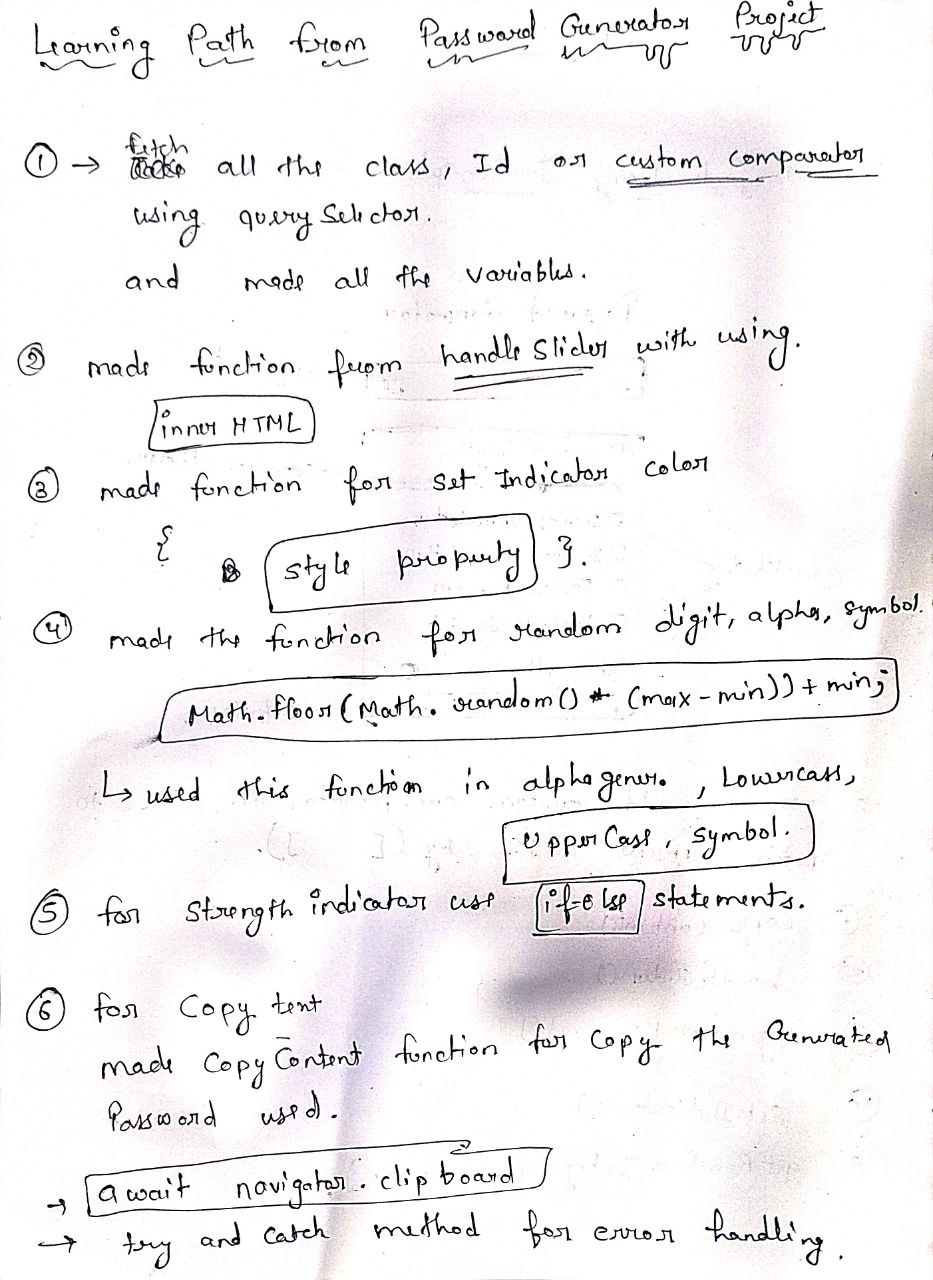 Learning Path from Password Generator Project
① → fetch all the class, Id or custom comparator
using query Selector.
and made all the variables.
② made function from handle Slider with using.
inner HTML
③ made function for set Indicator color
{ style property }.
④ made the function for random digit, alpha, symbol.
Math.floor(Math.random() * (max - min)) + min;
↳ used this function in alpha gener. , Lowercase,
Upper Case, symbol.
⑤ for Strength indicator use if-else statements.
⑥ for Copy tent
made Copy Content function for Copy the Generated
Password used.
→ await navigator.clipboard
→ try and catch method for error handling.